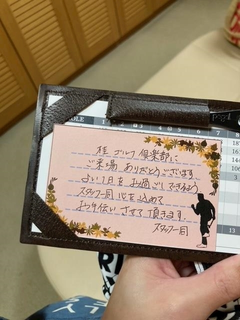 HOLE
桂 ゴルフ 倶楽部に
ご来場 ありがとうございます
よい1日を お過ごし下さいませ
スタッフ一同 心を込めて
お手伝い させて 頂きます
スタッフ一同
13